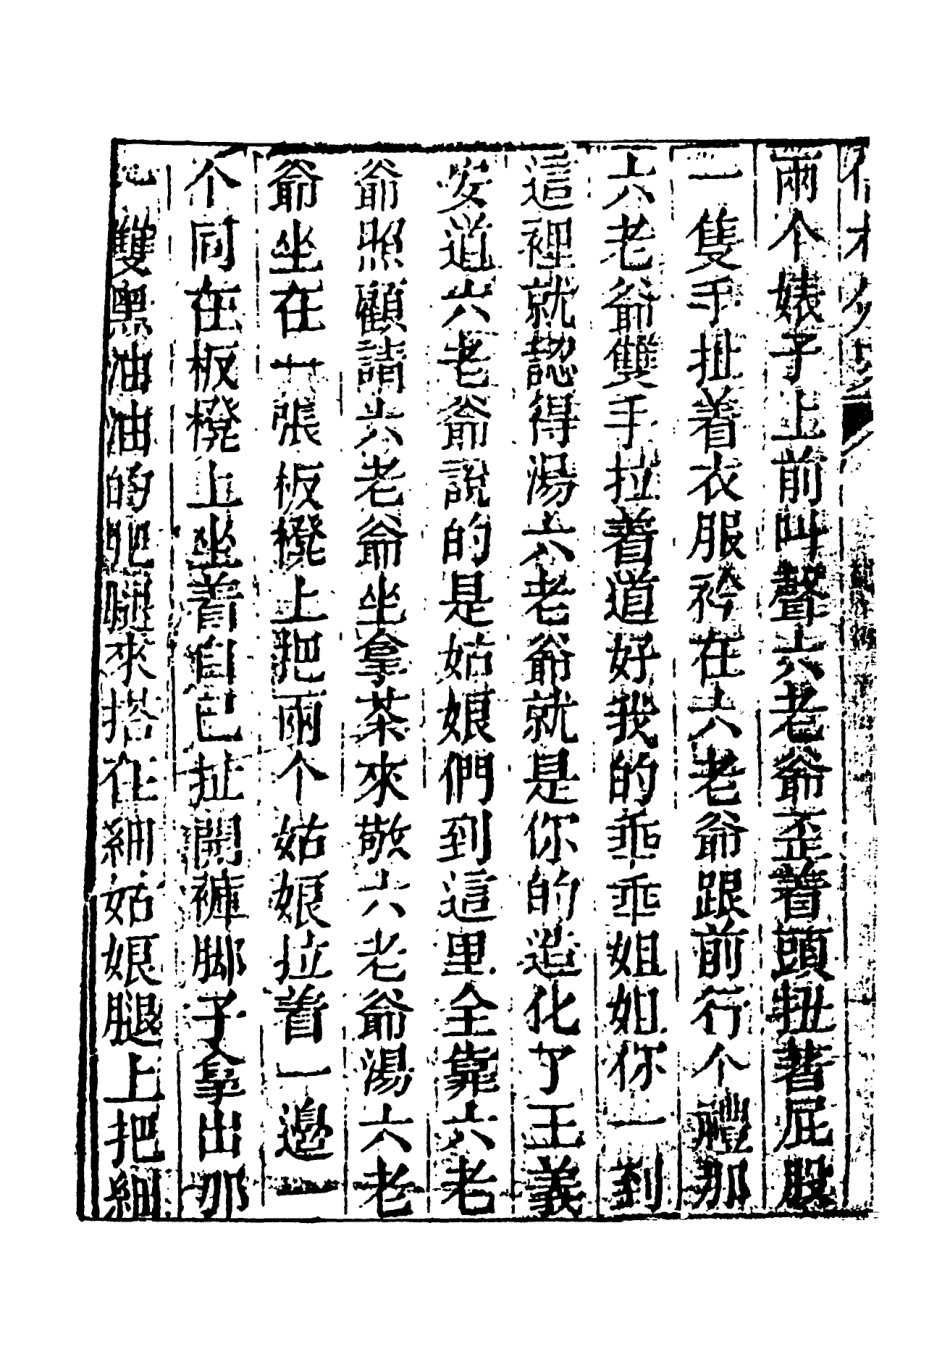 兩个婊子上前叫聲六老爺歪着頭扭著屁股
一隻手扯着衣服衿在六老爺跟前行个禮那
六老爺雙手拉着道好我的乖乖姐姐你一到
這裡就認得湯六老爺就是你的造化了王義
安道六老爺說的是姑娘們到這里全靠六老
爺照顧請六老爺坐拿茶來敬六老爺湯六老
爺坐在一張板櫈上把兩个姑娘拉着一邊一
个同在板櫈上坐着自已扯開褲脚子拿出那
一雙黑油油的肥腿來搭在細姑娘腿上把細